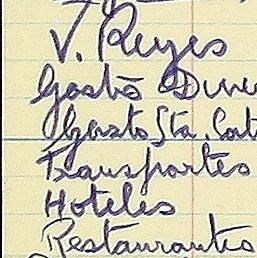 V. Reyes
Gastó Dine
Gasto Sta. Cat
Transportes
Hoteles
Restaurantes